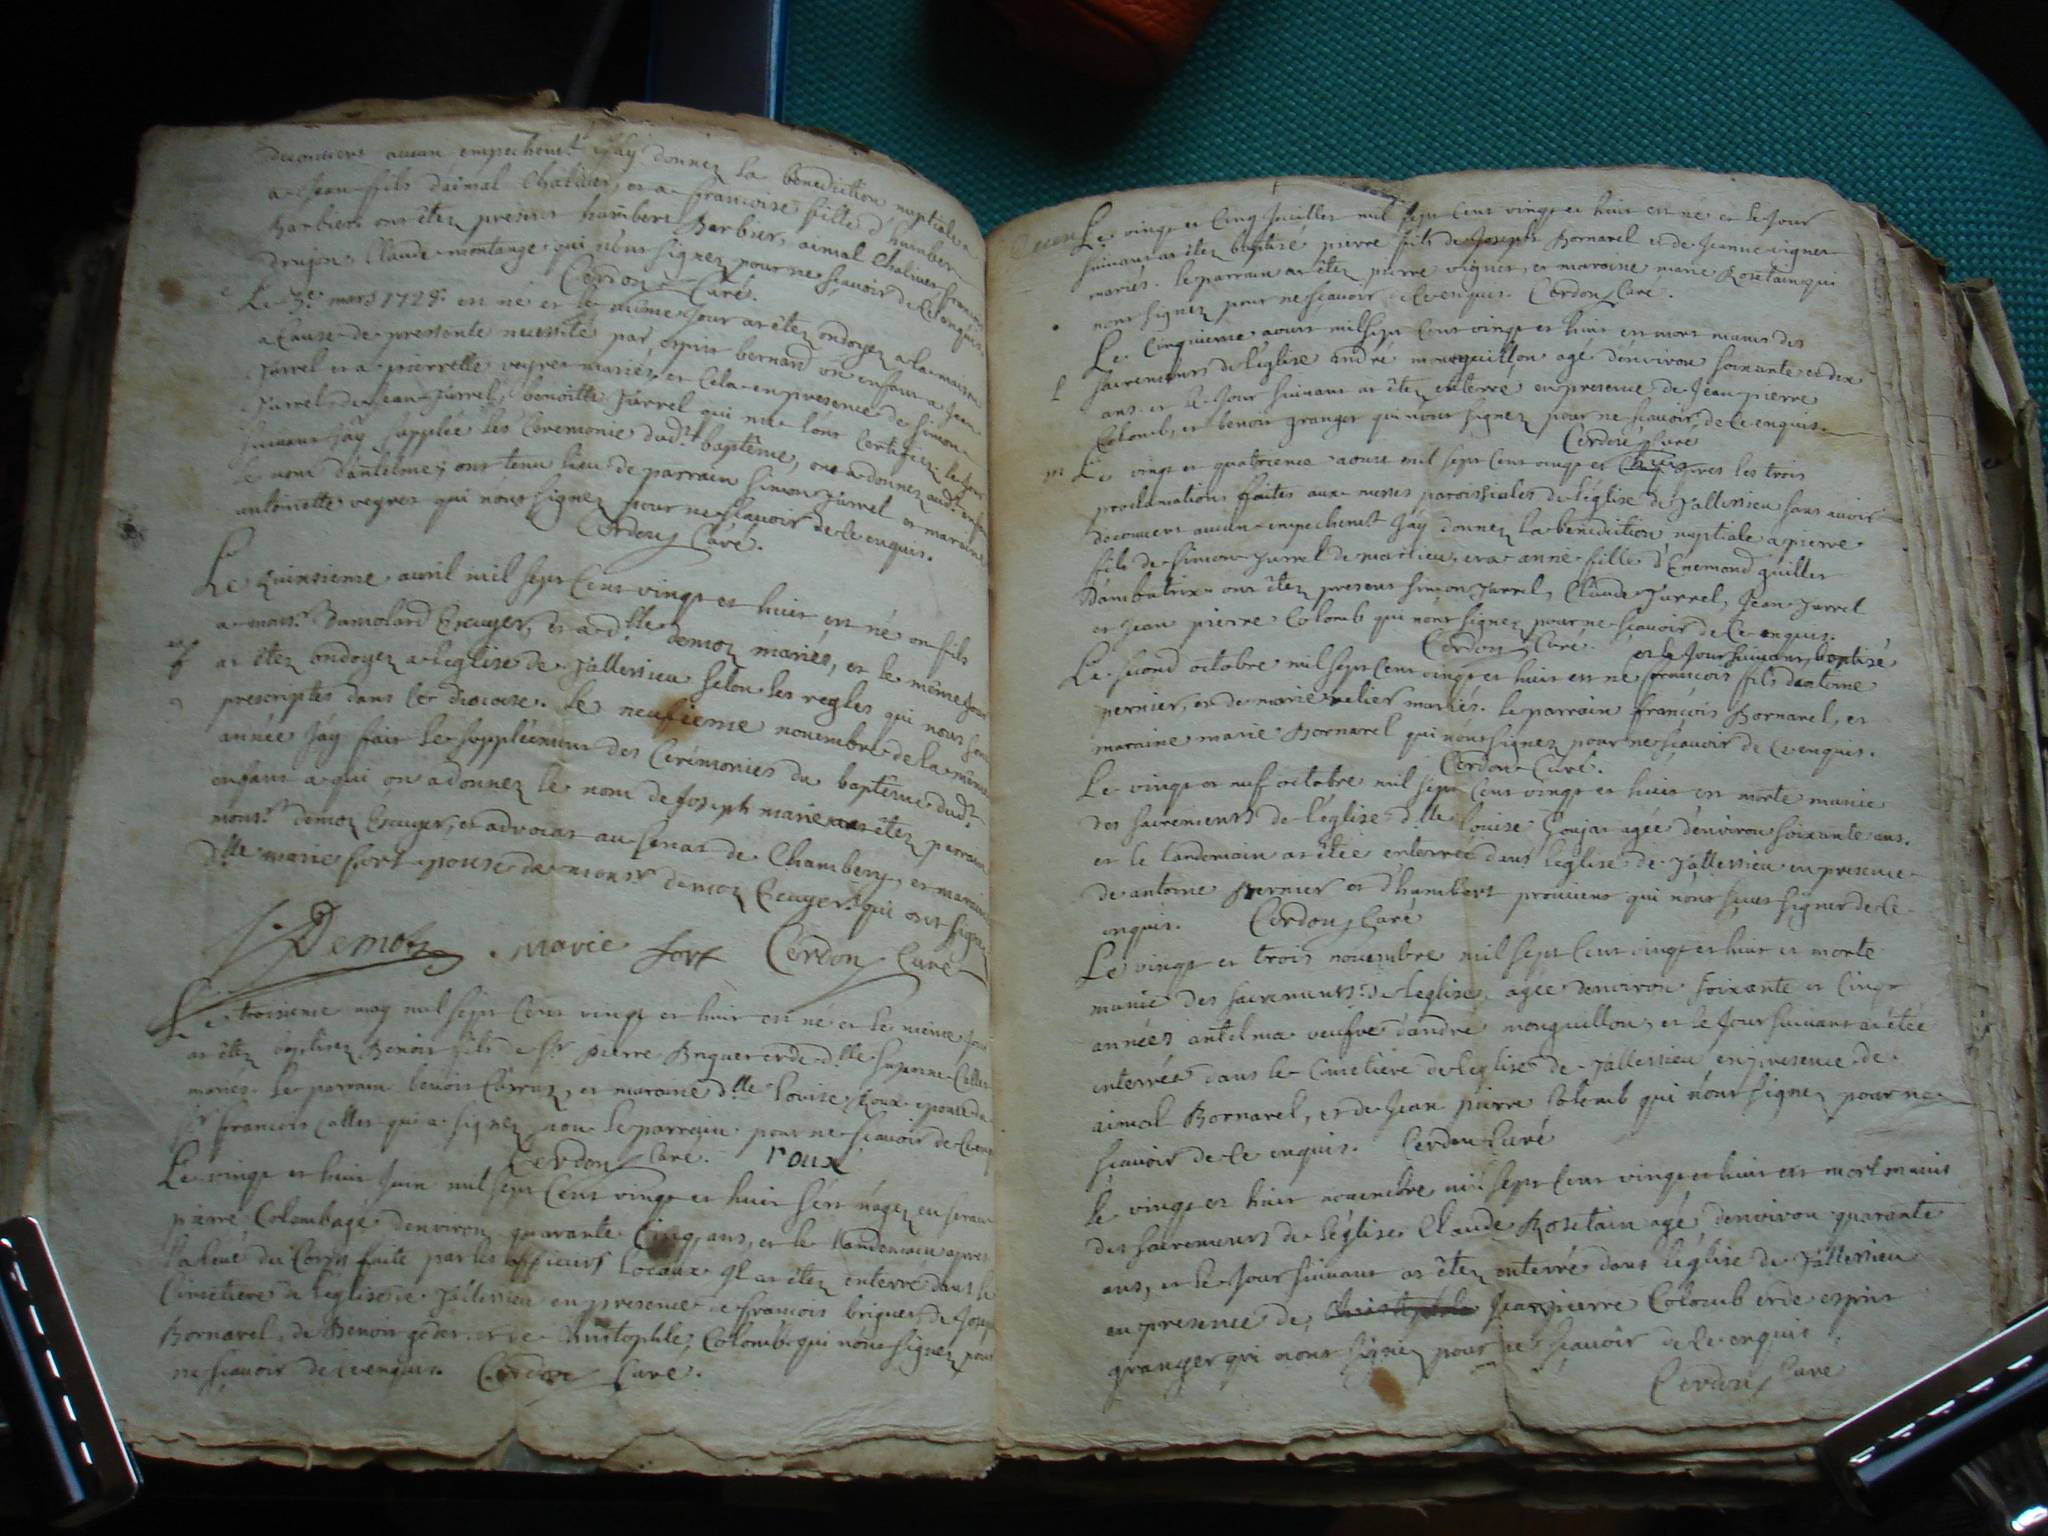 decouvert aucun empechemt j'ay donnez la benediction nuptiale
a Jean fils d'aimal Chaliuer, et a francoise fille d'humbert
Barbier ont êtez presents humbert Barbier, aimal Chaliuer francois
Claude montange qui n'ont signez pour ne scavoir de ce enquis.
Cerdon Curé.
Le 3e mars 1728 est né et le même jour at êtez ondoyez a la maison
a cause de pressente necessité par esprit bernard un enfant a Jean
Jurrel et a pierrette veyret mariés, et cela en presence de simon
Jurrel, de Jean Jurrel, benoitte Jurrel qui me l'ont certifiez. le jour
suivant j'ay supplée les Ceremonie dudt baptême, on a donnez audt enfant
le nom d'antelme, ont tenu lieu de parrain simon Jurrel et maraine
antoinette veyret qui n'ont signez pour ne scavoir de ce enquis.
Cerdon Curé.
Le quinsieme avril mil sept Cent vingt et huit est né on fils
a monsr Dumolard Ecuyer, et a dlle demoz mariés, et le même jour
at êtez ondoyez a l'eglise de Jallessieu selon les regles qui nous sont
prescriptes dans Cet dioicese. Le neufieme novembre de la même
année j'ay fait le supplément des Cerémonies du baptême dudt
enfant a qui on a donnez le nom de Joseph marie at êtez parrain
monsr demoz Ecuyer, et advocat au senat de Chambery, et maraine
dlle marie fort epouse de monsr demoz Ecuyer qui ont signez
Demotz . marie fort Cerdon Curé
Le troisieme may mil sept Cent vingt et huit est né et le même jour
at êtez baptisez Benoit fils de sr pierre Briguet et de dlle susanne Callet
mariés. le parrain benoit et maraine dlle Louise Roux epouse du
sr francois Callet qui a signez non le parrain pour ne scavoir de ce enquis
Cerdon Curé. roux
Le vingt et huit Juin mil sept Cent vingt et huit s'est
pierre Colomb agé d'environ quarante Cinq ans, et le landemain apres
du Corps faite par les officiers locaux Il at êtez enterré dans le
Cimetiere de l'église de Jallessieu en presence de francois briguet, de Joseph
Bornarel, de Benoit et de Christophle Colomb qui n'ont signez pour
ne scavoir de ce enquis. Cerdon Curé.
Le vingt et Cinq Juillet mil sept Cent vingt et huit est né et le Jour
suivant at êtez baptisé pierre fils de Joseph Bornarel et de Jeanne vignet
mariés. le parrain at êtez pierre vignet, et maraine marie Rosetain qui
n'ont signez pour ne scavoir de ce enquis. Cerdon Curé.
Le Cinquieme aoust mil sept Cent vingt et huit est mort munis des
sacrements de l'église andré monguillon agé d'environ soixante et dix
ans et le Jour suivant at êtez enterré en presence de Jean pierre
Colomb, et benoit granger qui n'ont signez pour ne scavoir de ce enquis.
Cerdon Curé
m Le vingt et quatrieme aoust mil sept Cent vingt et huit apres les trois
proclamations faites aux messes paroissiales de l'église de Jallessieu sans avoir
decouvert aucun empechemt j'ay donnez la benediction nuptiale a pierre
fils de simon Jurrel de marlieu, et a anne fille d'Enemond guillet
d'ambutrix ont êtez present simon Jurrel, Claude Jurrel, Jean Jurrel
et Jean pierre Colomb qui n'ont signez pour ne scavoir de ce enquis.
Cerdon Curé. et le Jour suivant baptisé
Le second octobre mil sept cent vingt et huit est né francois fils d'antoine
pernier, et de marie velier mariés. le parrain francois Bornarel, et
maraine marie Bornarel qui n'ont signez pour ne scavoir de ce enquis.
Cerdon Curé.
Le vingt et neuf octobre mil sept Cent vingt et huit est morte munie
des sacrements de l'église dlle Louise Goujat agée d'environ soixante ans,
et le landemain at êtée enterrée dans l'église de Jallessieu en presence
de antoine pernier et d'humbert prouvient qui n'ont sceu signer de ce
enquis. Cerdon Curé
Le vingt et trois novembre mil sept Cent vingt et huit est morte
munie des sacrements de l'eglise, agée d'environ soixante et Cinq
années antelma veufve d'andré monguillon, et le Jour suivant at êtée
enterrée dans le Cimetiere de l'eglise de Jallessieu en presence de
aimal Bornarel, et de Jean pierre Colomb qui n'ont signez pour ne
scavoir de ce enquis. Cerdon Curé
Le vingt et huit novembre mil sept Cent vingt et huit est mort munis
des sacrements de l'église Claude Rosetain agé d'environ quarante
ans, et le Jour suivant at êtez enterré dans l'église de Jallessieu
en presence de Jean pierre Colomb et de esprit
granger qui n'ont signez pour ne scavoir de ce enquis
Cerdon Curé